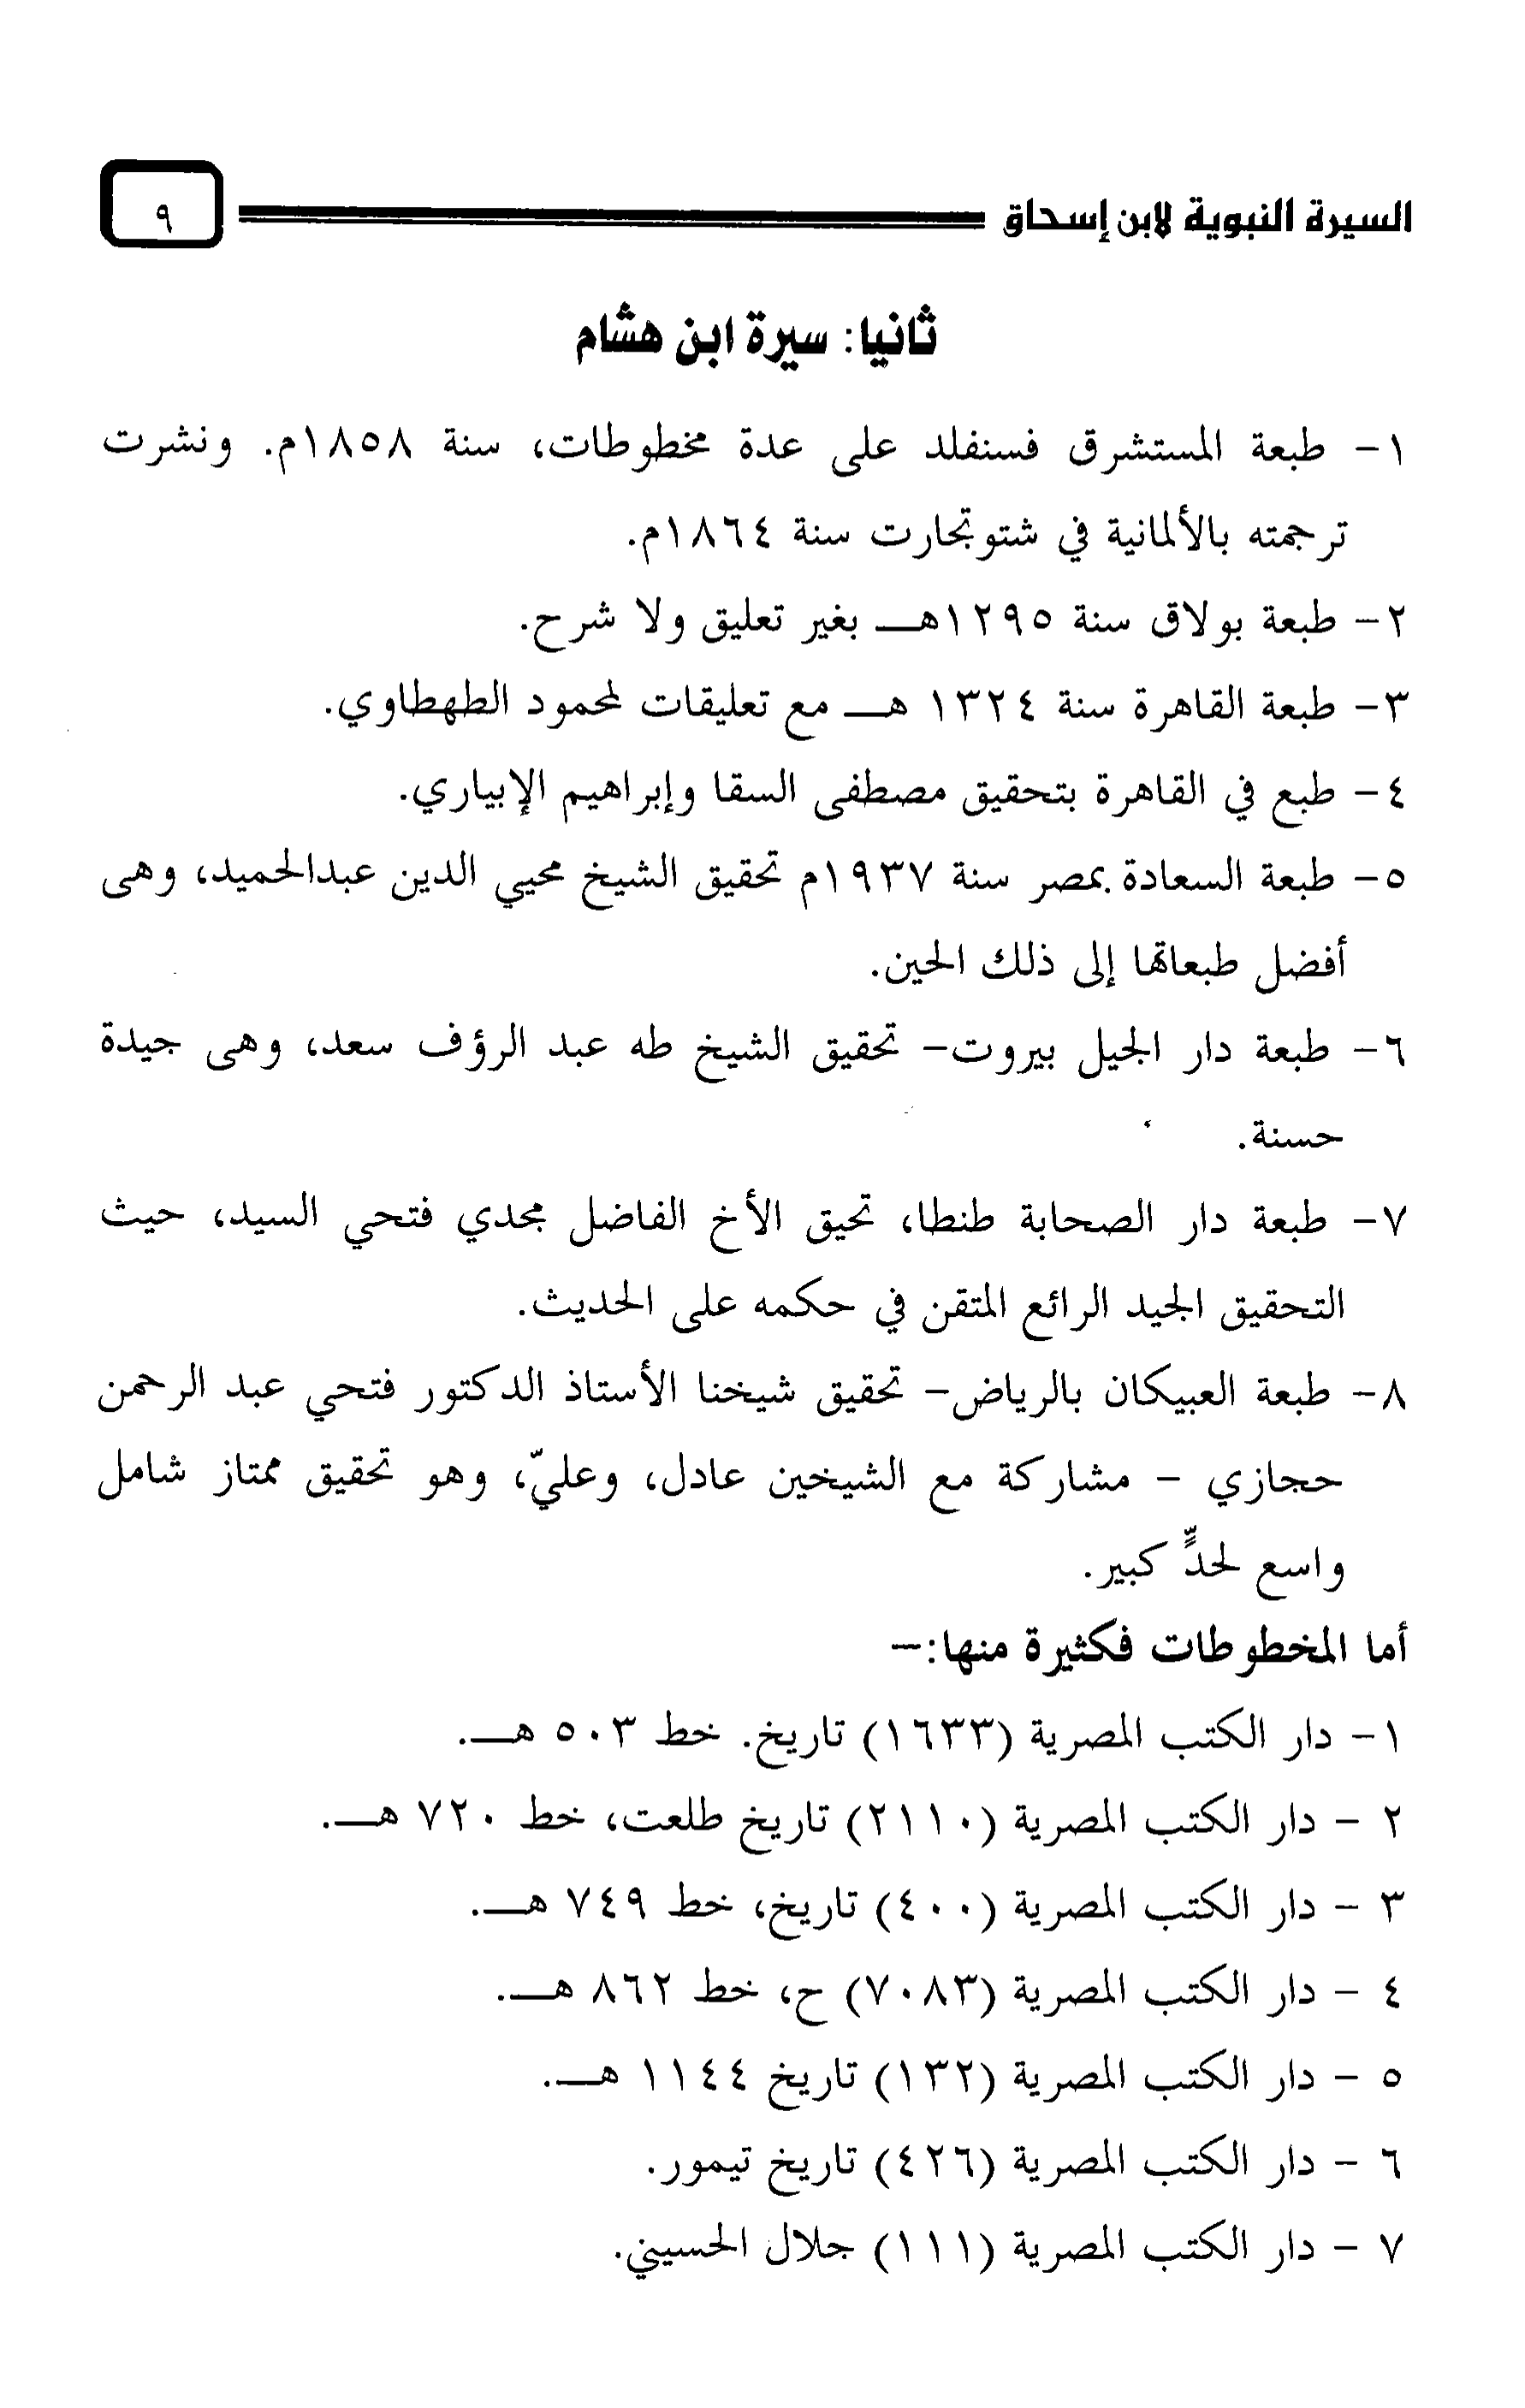 السيرة النبوية لابن إسحاق ٩
ثانيا: سيرة ابن هشام
١- طبعة المستشرق فسنفلد على عدة مخطوطات، سنة ١٨٥٨م. ونشرت
ترجمته بالألمانية في شتوتجارت سنة ١٨٦٤م.
٢- طبعة بولاق سنة ١٢٩٥هـ بغير تعليق ولا شرح.
٣- طبعة القاهرة سنة ١٣٢٤ هـ مع تعليقات لمحمود الطهطاوي.
٤- طبع في القاهرة بتحقيق مصطفى السقا وإبراهيم الإبياري.
٥- طبعة السعادة بمصر سنة ١٩٣٧م تحقيق الشيخ محيي الدين عبدالحميد، وهى
أفضل طبعاتها إلى ذلك الحين.
٦- طبعة دار الجيل بيروت- تحقيق الشيخ طه عبد الرؤف سعد، وهى جيدة
حسنة.
٧- طبعة دار الصحابة طنطا، تحيق الأخ الفاضل مجدي فتحي السيد، حيث
التحقيق الجيد الرائع المتقن في حكمه على الحديث.
٨- طبعة العبيكان بالرياض- تحقيق شيخنا الأستاذ الدكتور فتحي عبد الرحمن
حجازي - مشاركة مع الشيخين عادل، وعليّ، وهو تحقيق ممتاز شامل
واسع لحدٍّ كبير.
أما المخطوطات فكثيرة منها:-
١- دار الكتب المصرية (١٦٣٣) تاريخ. خط ٥٠٣ هـ.
٢ - دار الكتب المصرية (٢١١٠) تاريخ طلعت، خط ٧٢٠ هـ.
٣ - دار الكتب المصرية (٤٠٠) تاريخ، خط ٧٤٩ هـ.
٤ - دار الكتب المصرية (٧٠٨٣) ح، خط ٨٦٢ هـ.
٥ - دار الكتب المصرية (١٣٢) تاريخ ١١٤٤ هـ.
٦ - دار الكتب المصرية (٤٢٦) تاريخ تيمور.
٧ - دار الكتب المصرية (١١١) جلال الحسيني.